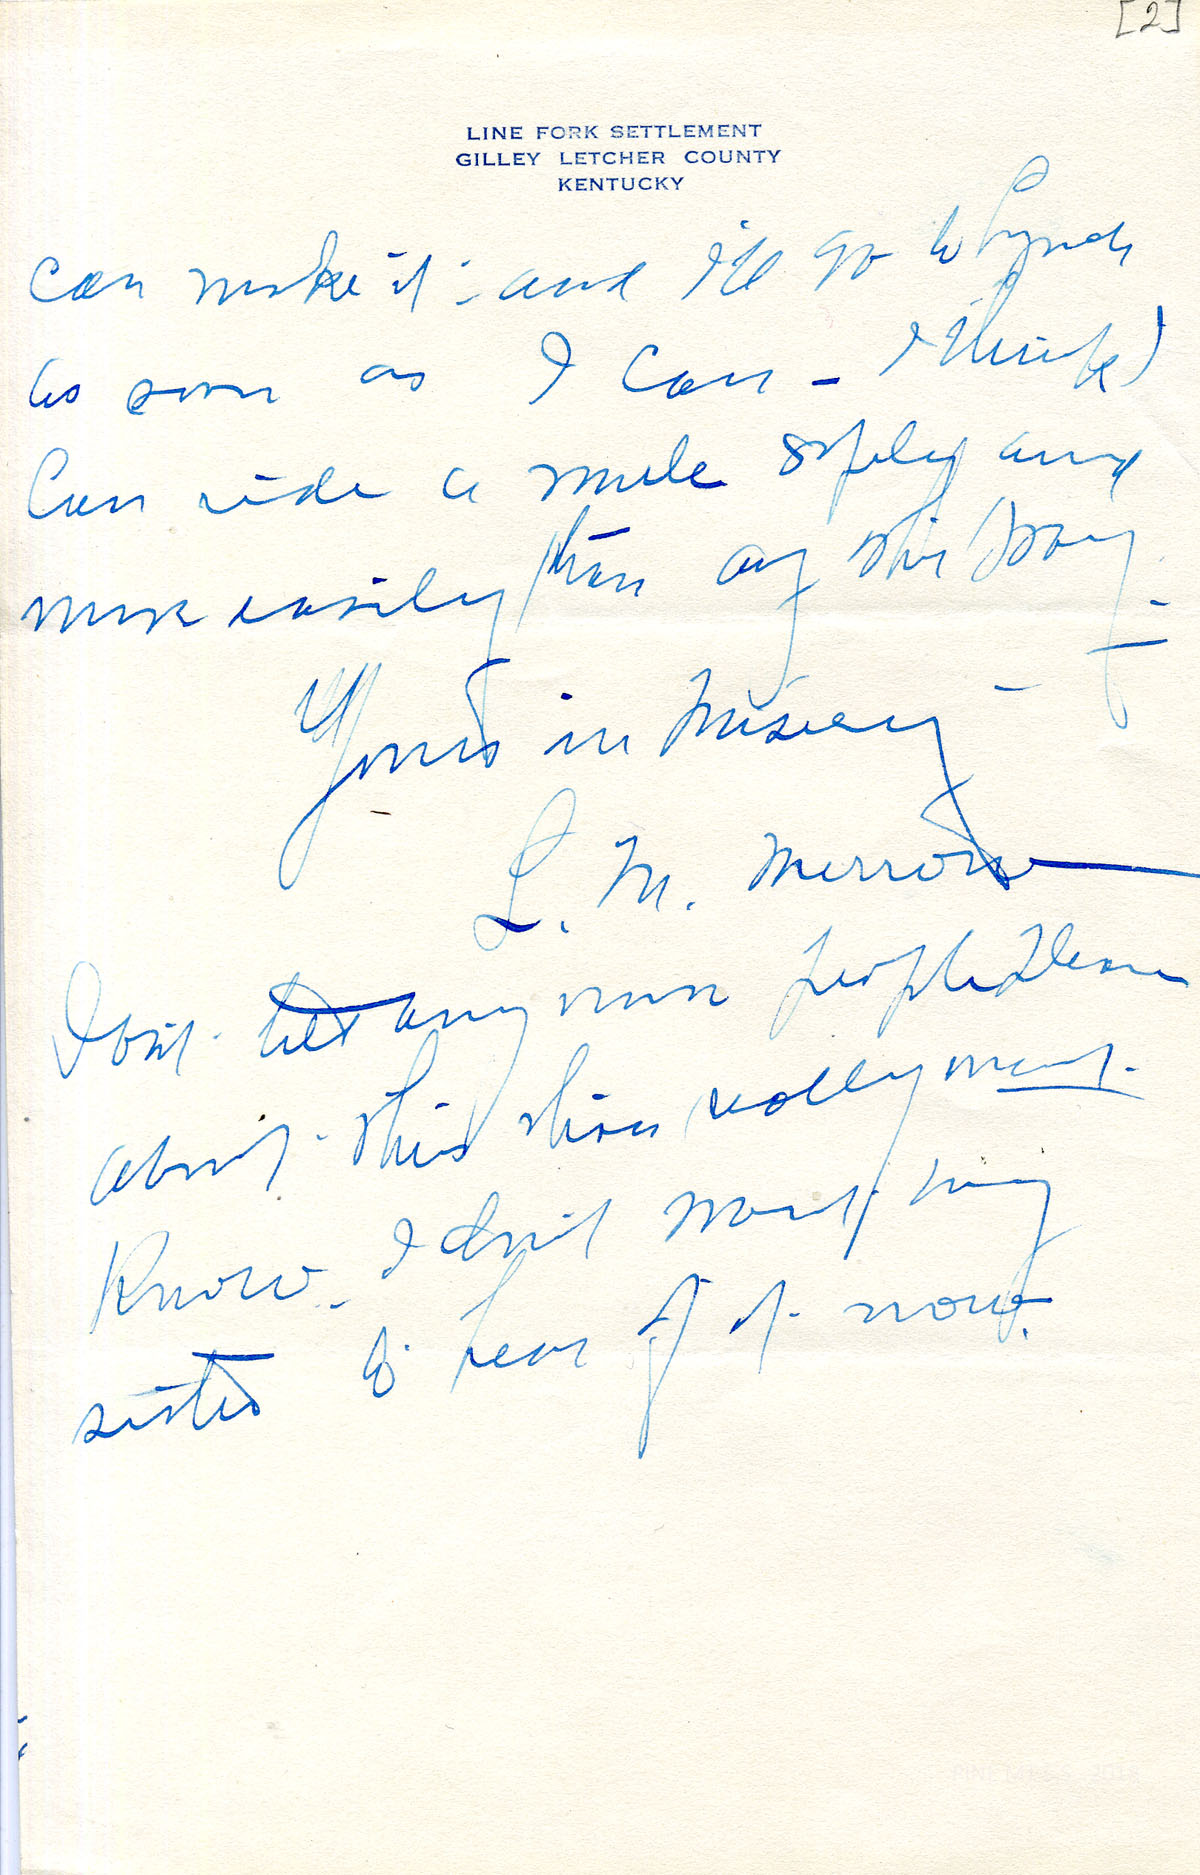 [2]
LINE FORK SETTLEMENT
GILLEY LETCHER COUNTY
KENTUCKY
can make it - and I'll go to Lynch
as soon as I can - I think I
can ride a mule safely and
more easily than any other way.
Yours in misery -
L. M. Merrow
Don't let any more people know
about this than really must
know - I don't want my
sister to hear of it now.
PINE MTN. S. 2018